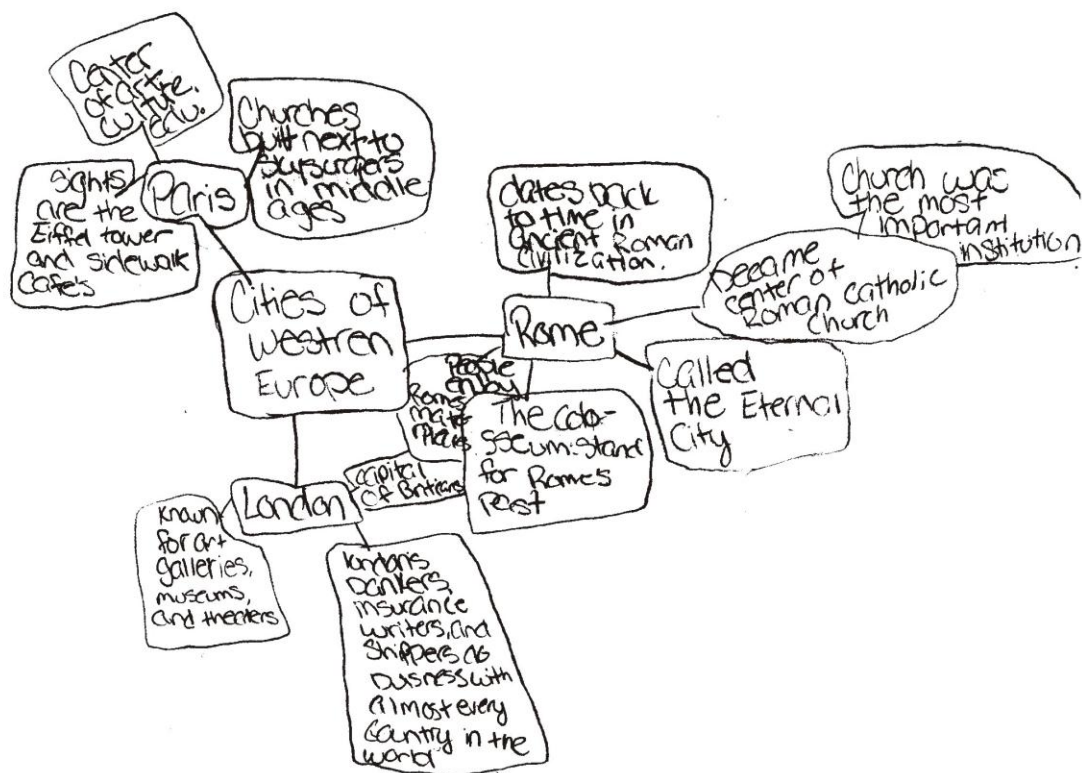 Center
of art
cuture.
edu.
Churches
built next to
skyscrapers
in middle
ages
Sights
are the
Eiffel tower
and sidewalk
cafe's
Paris
Cities of
Westren
Europe
dates back
to time in
ancient Roman
Civilization.
Church was
the most
important
institution
became
center of
Roman Catholic
Church
Rome
Called
the Eternal
City
People
enjoy
Rome's
The colo-
sseum:stand
for Rome's
Past
capital
of
London
Known
for art
galleries,
museums,
and theaters
london's
bankers,
insurance
writers, and
shippers do
buisness with
almost every
country in the
world